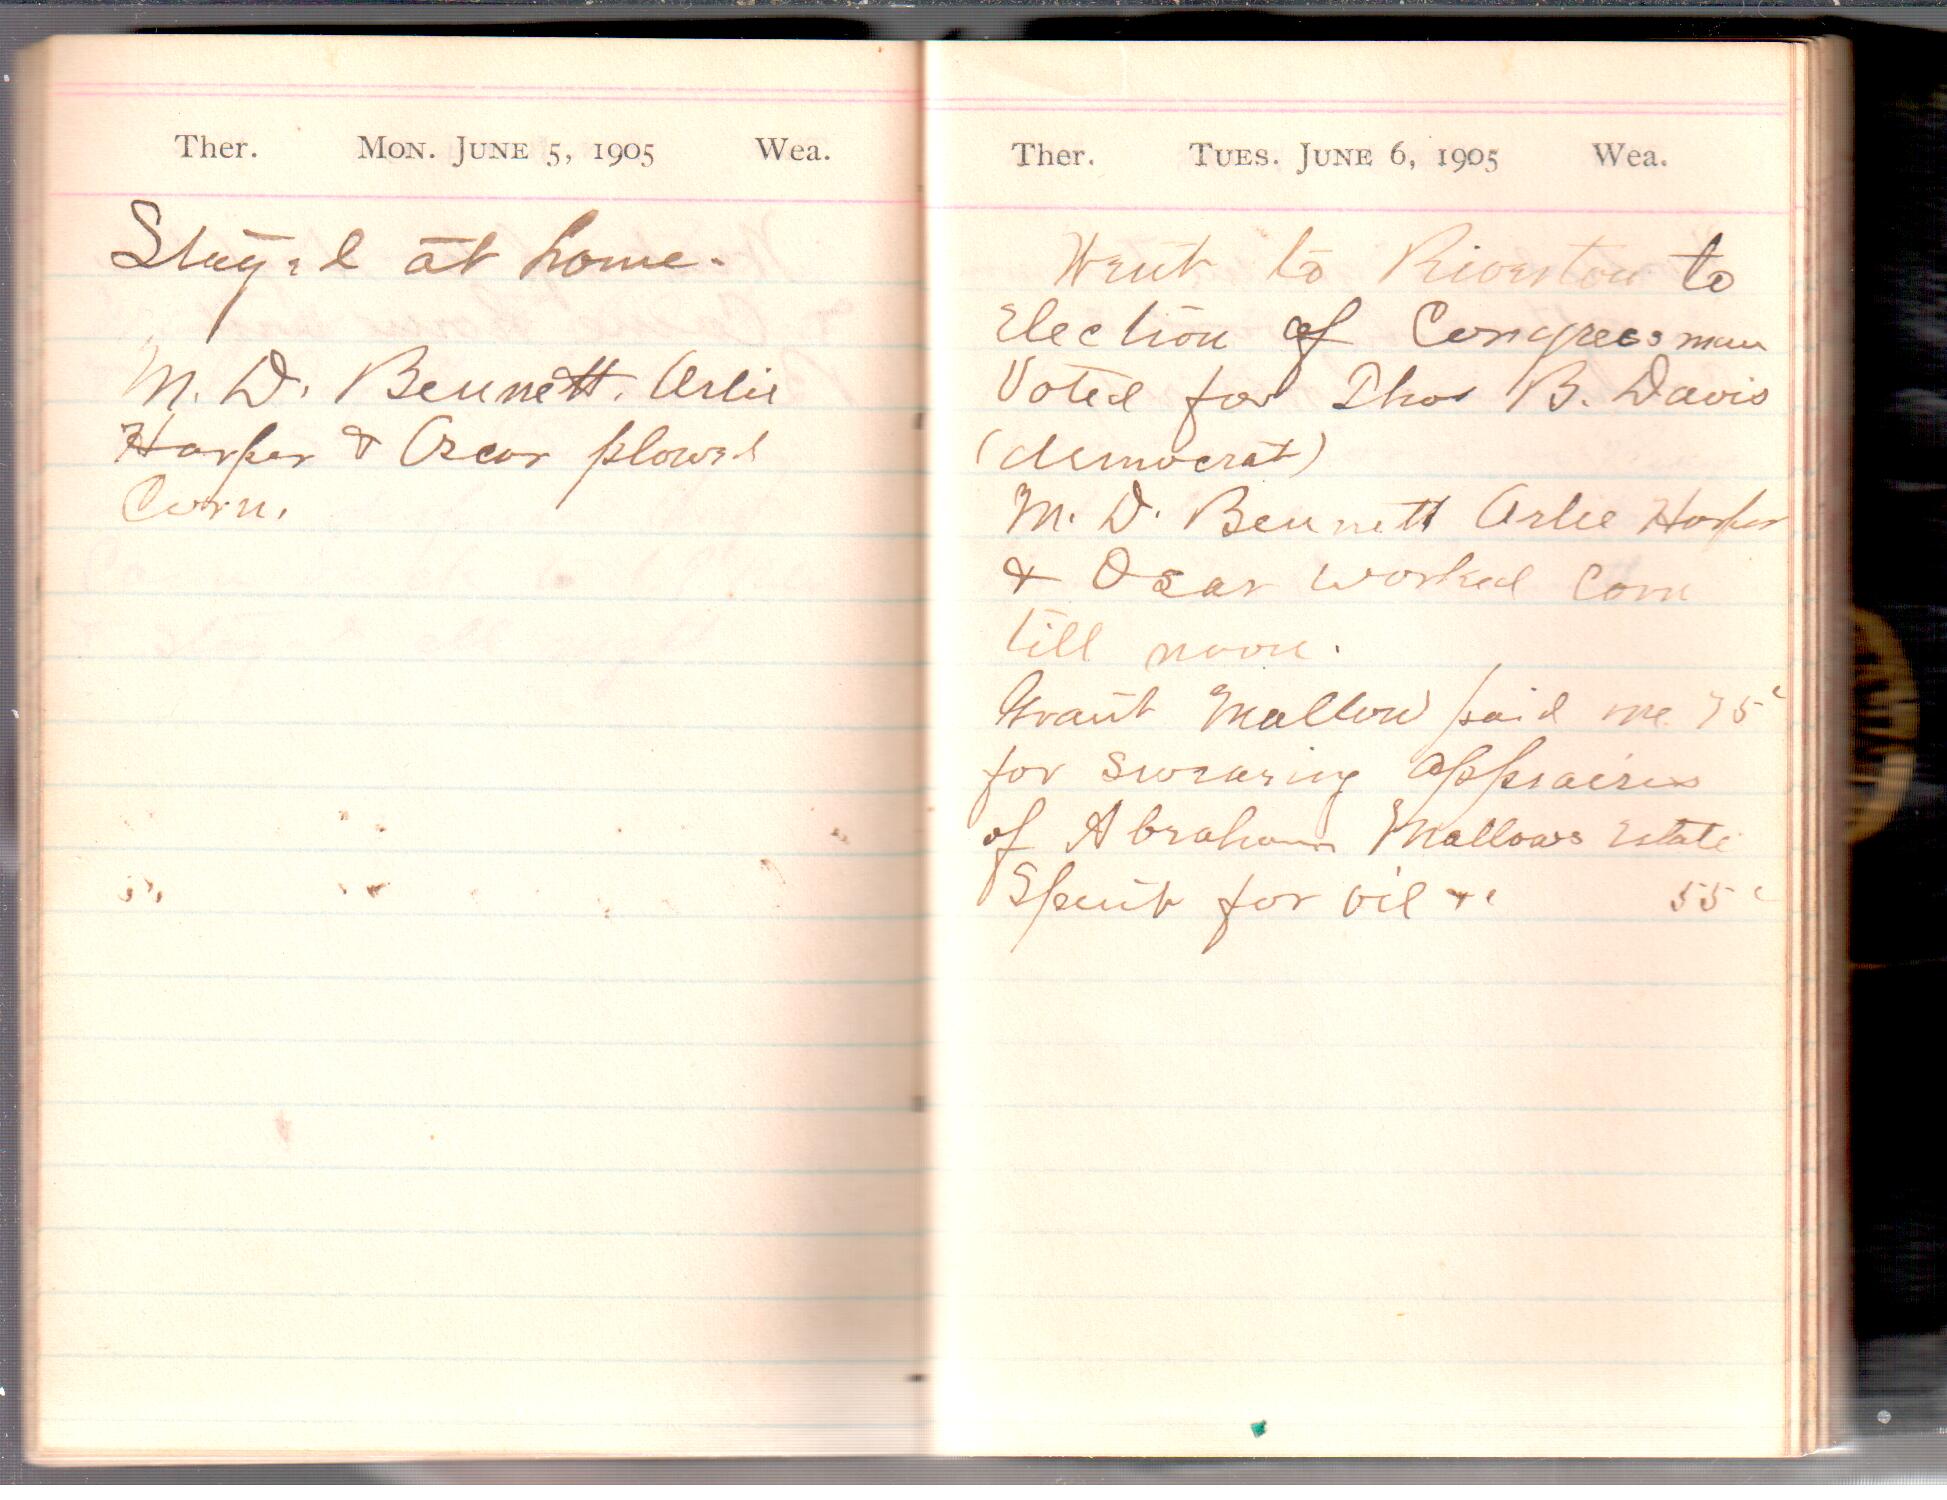 Ther. Mon. June 5, 1905 Wea.
Stayed at home.
M. D. Bennett, Arlie
Harper & Oscar plowed
Corn.
Ther. Tues. June 6, 1905 Wea.
Went to Riverton to
Election of Congressman
Voted for Thos B. Davis
(democrat)
M. D. Bennett Arlie Harper
& Oscar worked Corn
till noon.
Grant Mallow paid me 75c
for swearing appraisers
of Abraham Mallows Estate
Spent for oil &c 55c